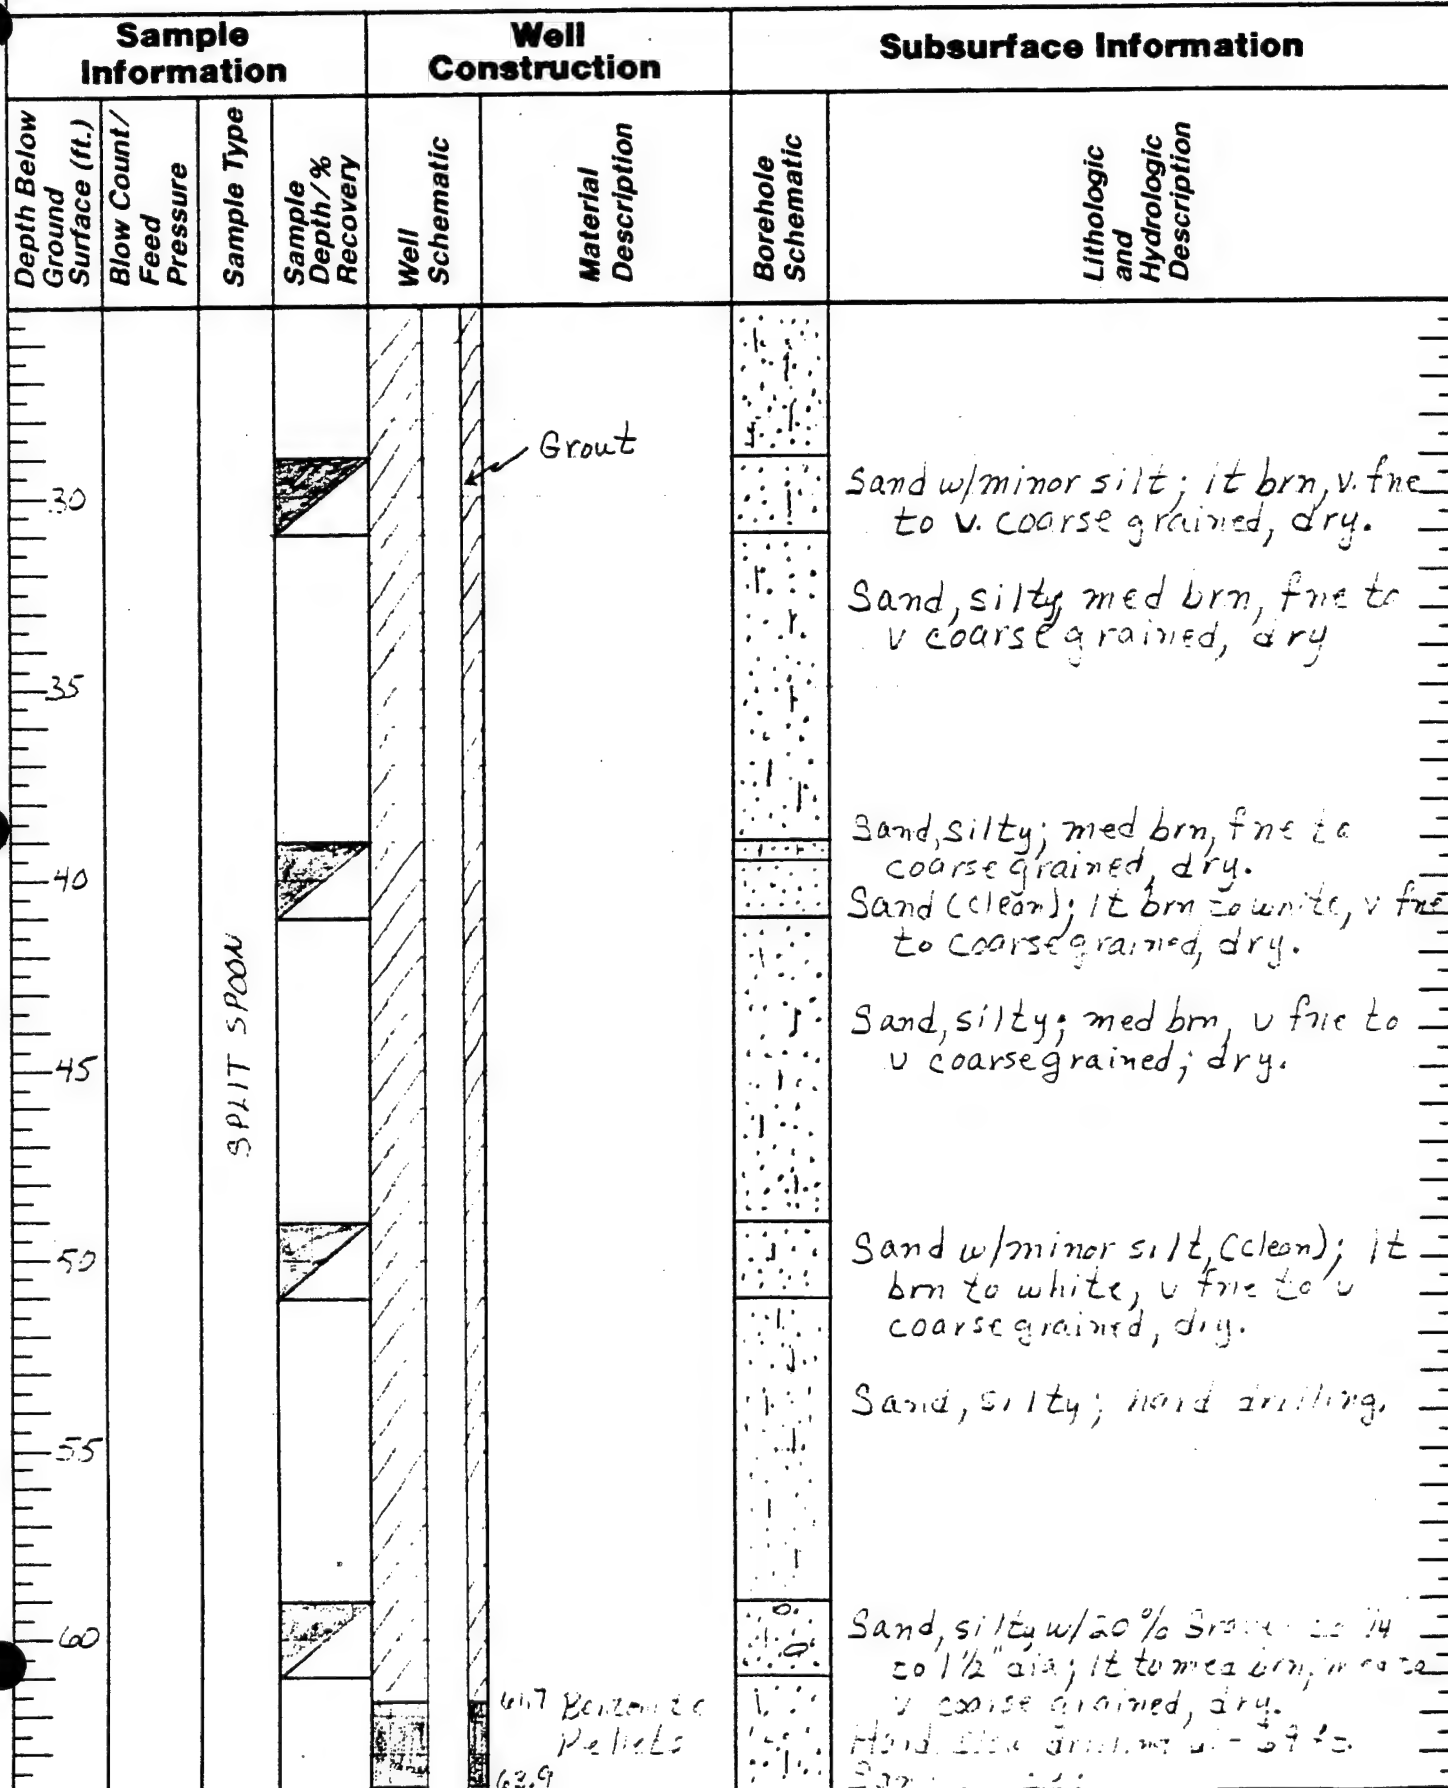 Sample Information
Well Construction
Subsurface Information
Depth Below Ground Surface (ft.)
Blow Count/ Feed Pressure
Sample Type
Sample Depth/% Recovery
Well Schematic
Material Description
Borehole Schematic
Lithologic and Hydrologic Description
Grout
30
Sand w/minor silt; lt brn, v. fne
to v. coarse grained, dry.
Sand, silty, med brn, fne to
v coarse grained, dry
35
Sand, silty; med brn, fne to
coarse grained, dry.
40
Sand (clean); lt brn to white, v fne
to coarse grained, dry.
SPLIT SPOON
Sand, silty; med brn, v fne to
v coarse grained; dry.
45
50
Sand w/minor silt, (clean); lt
brn to white, v fne to v
coarse grained, dry.
Sand, silty; hard drilling.
55
60
Sand, silty w/20% 1/4
to 1 1/2" dia; lt to med brn,
v coarse grained, dry.
61.7 Bentonite
Pellets
Hard drilling
63.9